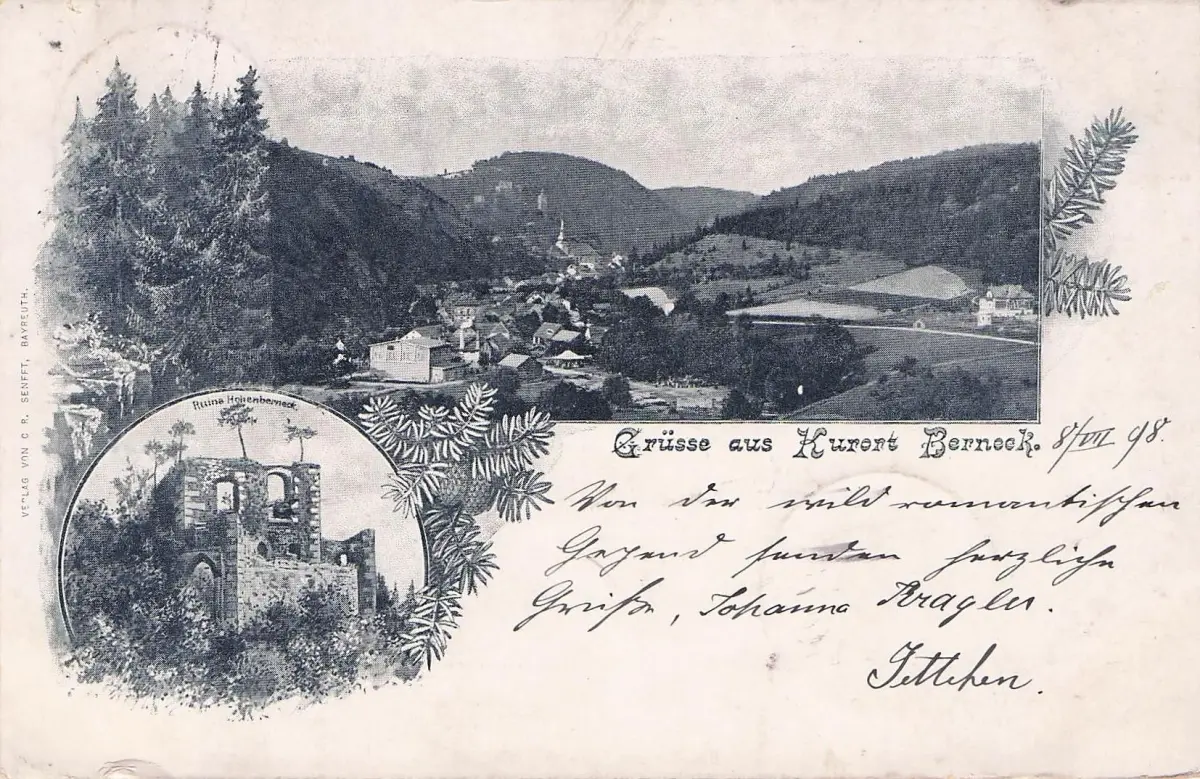 VERLAG VON C R. SENFFT, BAYREUTH.
Ruine Hohenberneck.
Grüsse aus Kurort Berneck. 8/VIII 98.
Von der wild romantischen
Gegend senden herzliche
Grüße, Johanna Kragler.
Jettchen.